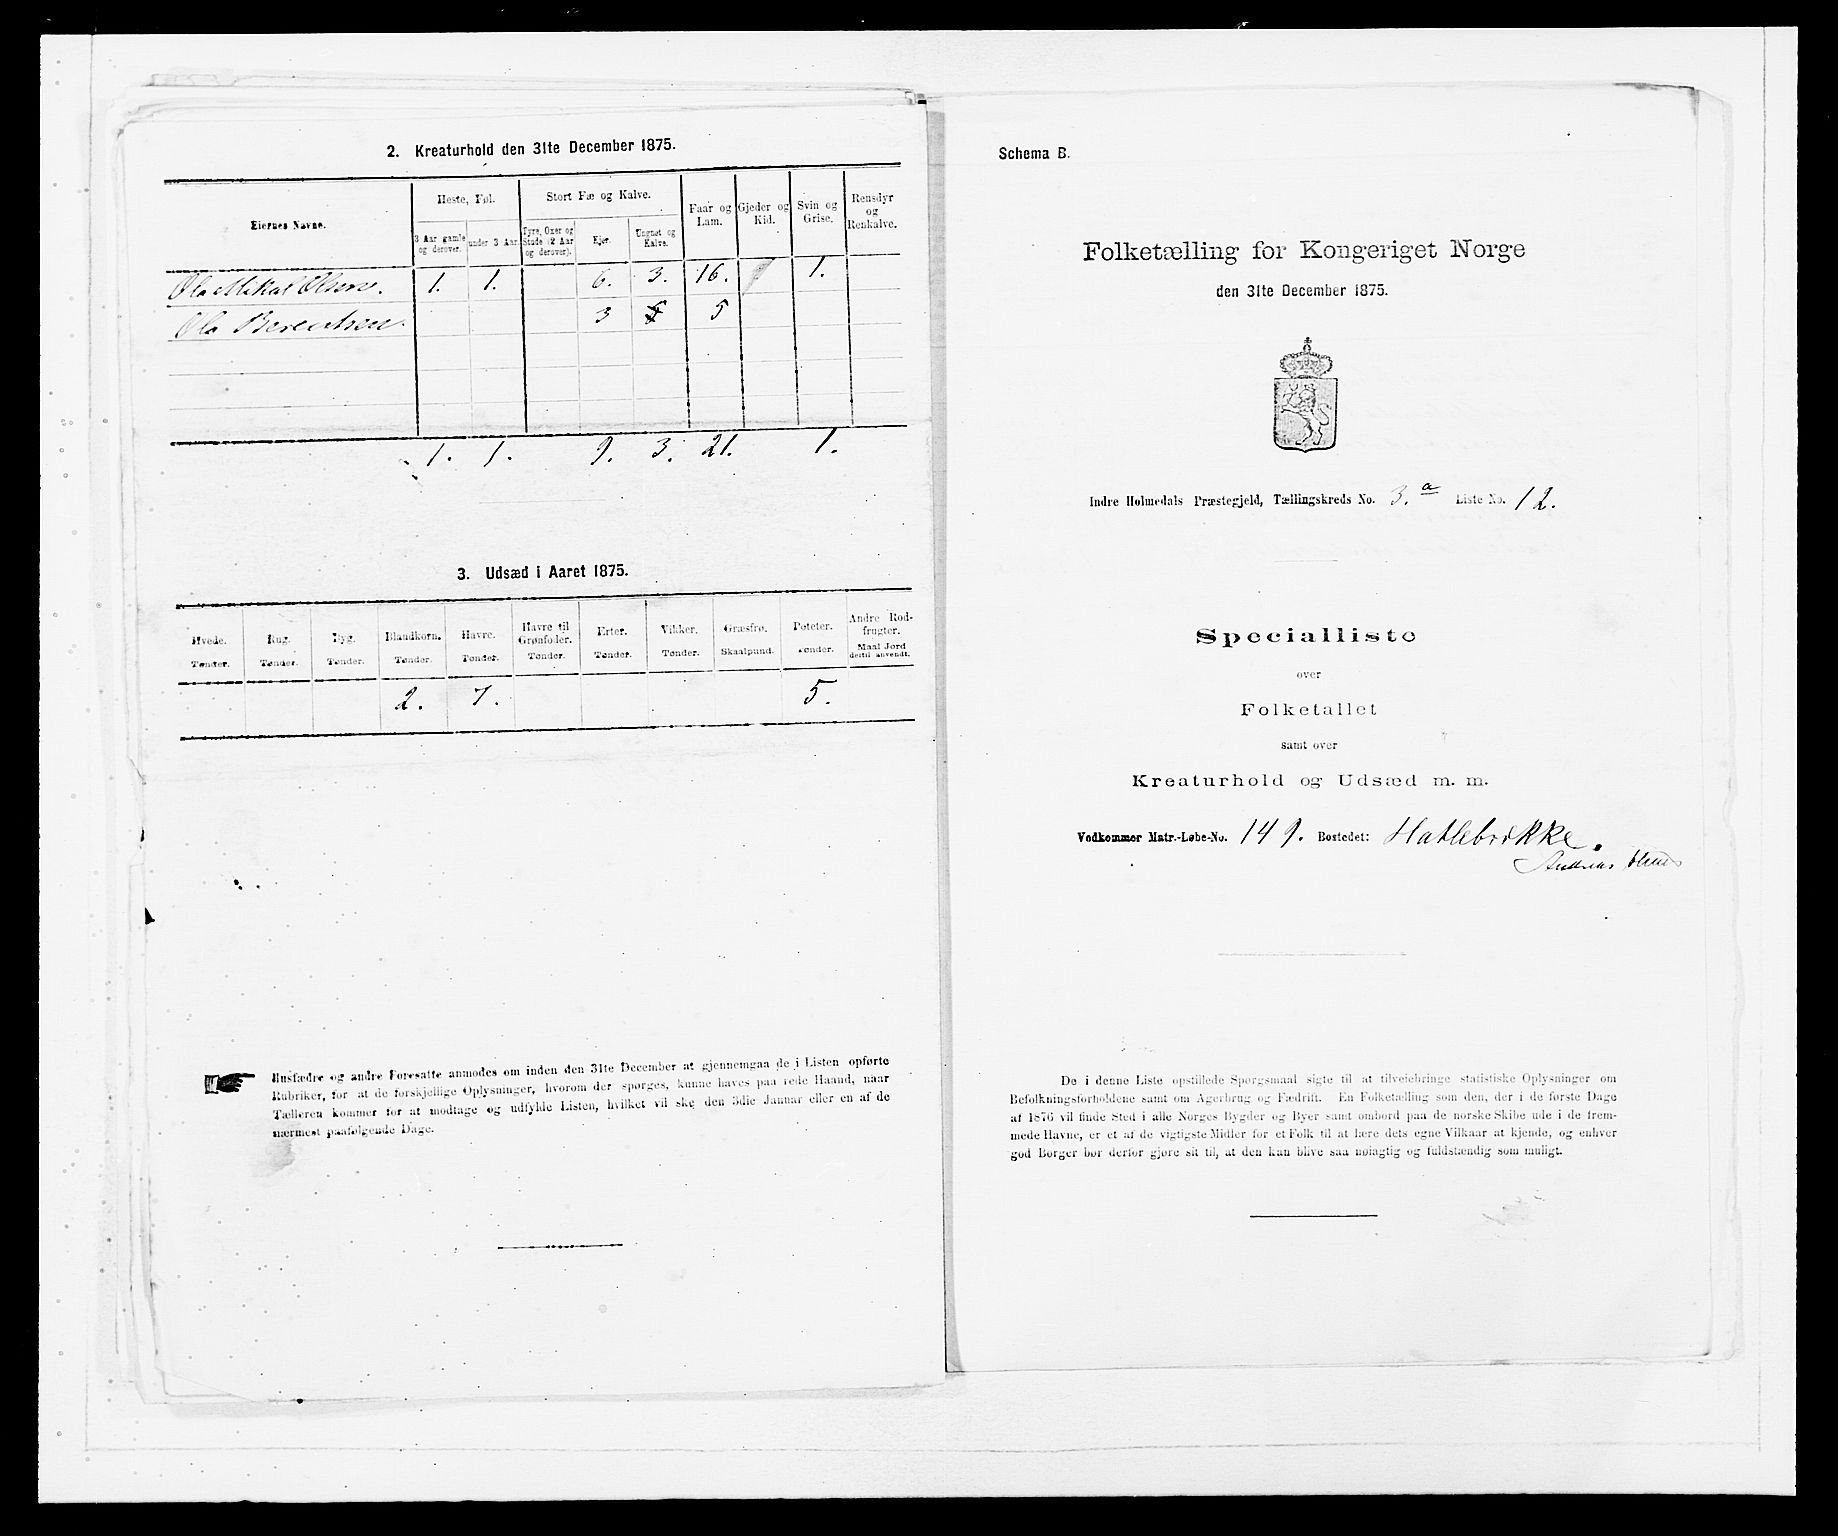 2. Kreaturhold den 31te December 1875.
Eiernes Navne.
Heste, Føl.
Stort Fæ og Kalve.
Faar og Lam.
Gjeder og Kid.
Svin og Grise.
Rensdyr og Renkalve.
3 Aar gamle og derover.
under 3 Aar.
Tyre, Oxer og Stude (2 Aar og derover).
Kjør.
Ungnøt og Kalve.
Ola Mikal Olsen. 1. 1. 6. 3. 16. 1.
Ola Berentsen. 3 5
1. 1. 9. 3. 21. 1.
3. Udsæd i Aaret 1875.
Hvede. Rug. Byg. Blandkorn. Havre. Havre til Grønfoder. Erter. Vikker. Græsfrø. Poteter. Andre Rodfrugter.
Tønder. Tønder. Tønder. Tønder. Tønder. Tønder. Tønder. Tønder. Skaalpund. Tønder. Maal Jord dertil anvendt.
2. 7. 5.
Husfædre og andre Foresatte anmodes om inden den 31te December at gjennemgaa de i Listen opførte
Rubriker, for at de forskjellige Oplysninger, hvorom der spørges, kunne haves paa rede Haand, naar
Tælleren kommer for at modtage og udfylde Listen, hvilket vil ske den 3die Januar eller en af de
nærmest paafølgende Dage.
Schema B.
Folketælling for Kongeriget Norge
den 31te December 1875.
Indre Holmedals Præstegjeld, Tællingskreds No. 3. a Liste No. 12.
Specialliste
over
Folketallet
samt over
Kreaturhold og Udsæd m. m.
Vedkommer Matr.-Løbe-No. 149. Bostedet: Hatlebrekke.
Andreas
De i denne Liste opstillede Spørgsmaal sigte til at tilveiebringe statistiske Oplysninger om
Befolkningsforholdene samt om Agerbrug og Fædrift. En Folketælling som den, der i de første Dage
af 1876 vil finde Sted i alle Norges Bygder og Byer samt ombord paa de norske Skibe ude i de frem-
mede Havne, er et af de vigtigste Midler for et Folk til at lære dets egne Vilkaar at kjende, og enhver
god Borger bør derfor gjøre sit til, at den kan blive saa nøiagtig og fuldstændig som muligt.